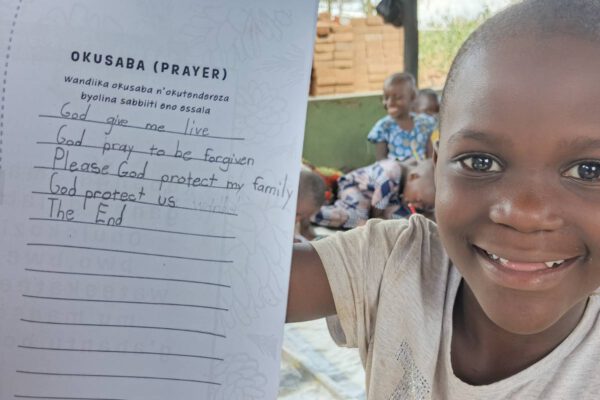 OKUSABA (PRAYER)
wandiika okusaba n'okutenderoza
byolina sabbiiti eno essala
God give me live
God pray to be forgiven
Please God protect my family
God protect us
The End